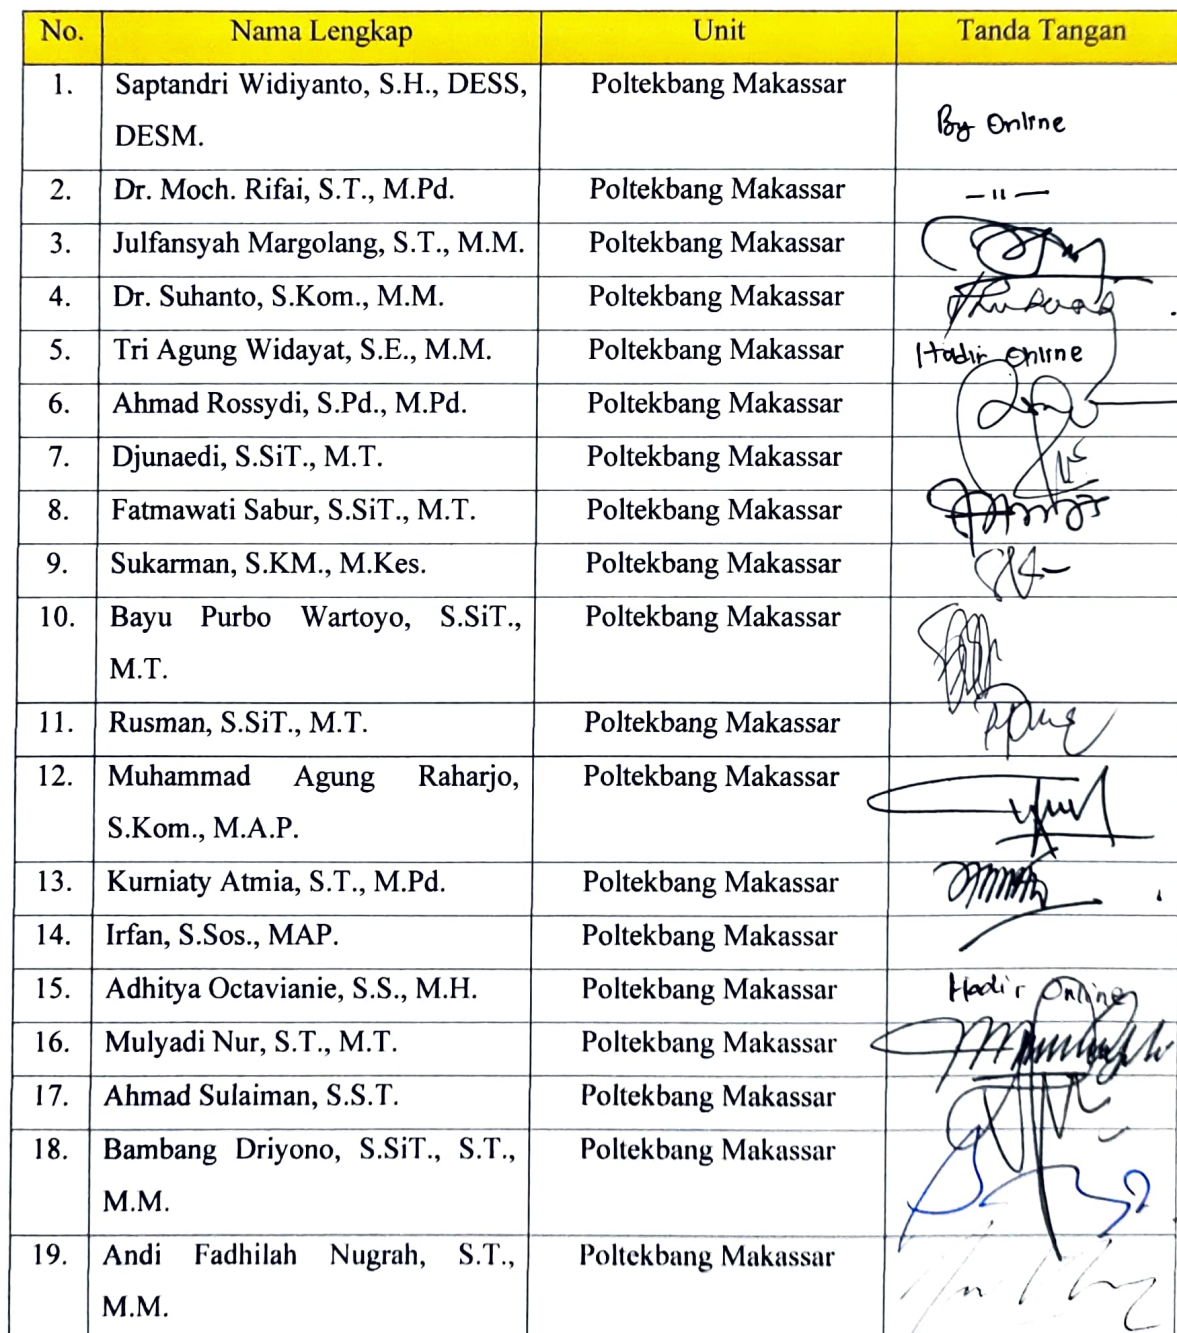 No. Nama Lengkap Unit Tanda Tangan
1. Saptandri Widiyanto, S.H., DESS, Poltekbang Makassar
DESM. By Online
2. Dr. Moch. Rifai, S.T., M.Pd. Poltekbang Makassar — 11 —
3. Julfansyah Margolang, S.T., M.M. Poltekbang Makassar
4. Dr. Suhanto, S.Kom., M.M. Poltekbang Makassar
5. Tri Agung Widayat, S.E., M.M. Poltekbang Makassar Hadir Online
6. Ahmad Rossydi, S.Pd., M.Pd. Poltekbang Makassar
7. Djunaedi, S.SiT., M.T. Poltekbang Makassar
8. Fatmawati Sabur, S.SiT., M.T. Poltekbang Makassar
9. Sukarman, S.KM., M.Kes. Poltekbang Makassar
10. Bayu Purbo Wartoyo, S.SiT., Poltekbang Makassar
M.T.
11. Rusman, S.SiT., M.T. Poltekbang Makassar
12. Muhammad Agung Raharjo, Poltekbang Makassar
S.Kom., M.A.P.
13. Kurniaty Atmia, S.T., M.Pd. Poltekbang Makassar
14. Irfan, S.Sos., MAP. Poltekbang Makassar
15. Adhitya Octavianie, S.S., M.H. Poltekbang Makassar Hadir Online
16. Mulyadi Nur, S.T., M.T. Poltekbang Makassar
17. Ahmad Sulaiman, S.S.T. Poltekbang Makassar
18. Bambang Driyono, S.SiT., S.T., Poltekbang Makassar
M.M.
19. Andi Fadhilah Nugrah, S.T., Poltekbang Makassar
M.M.